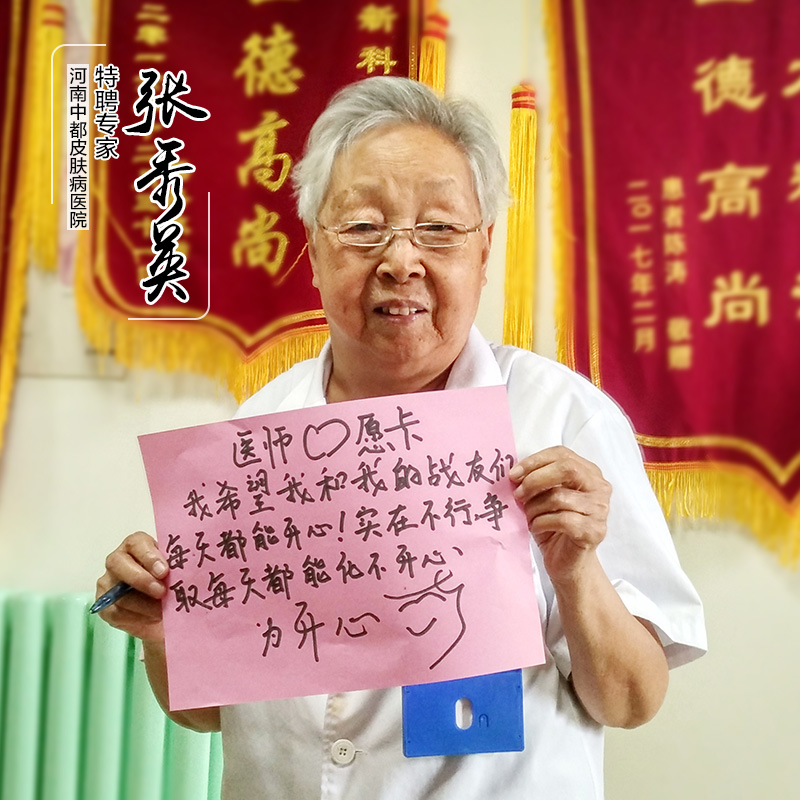 特聘专家
河南中都皮肤病医院
张秀英
医师♡愿卡
我希望我和我的战友们
每天都能开心！实在不行，争
取每天都能化不开心
为开心
德高尚
新科
德高尚
患者陈涛 敬赠
二〇一七年二月